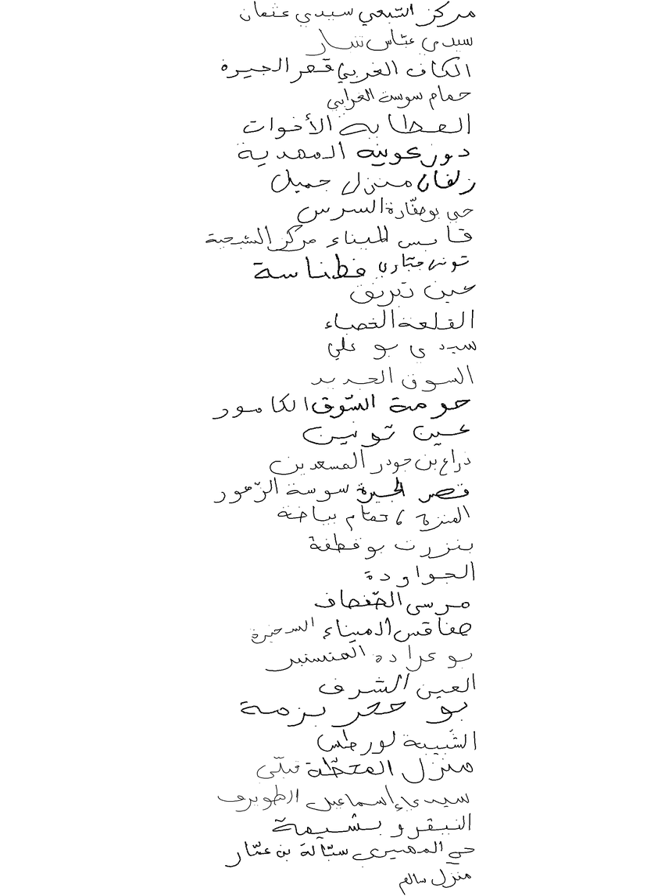 مركز الشبعي سيدي عثمان
سيدي عبّاس تتسار
الكاف الغربي قصر الجيرة
حمام سوسة الغرابي
العطاية الأخوات
دوز عوينه المهدية
زلفان منزل جميل
حي بوصفّارة السرس
قابس الميناء مركز الشيحية
تونس حبّاري فطناسة
عين تبرنق
القلعة الخصباء
سيدي بو علي
السوق الجديد
حومة السّوق الكامور
عين تونين
ذراع بن جودر المسعدين
قصر الجيرة سوسة الزّهور
المنزه ٨ حمّام بياضة
بنزرت بوقطفة
الجواودة
مرسى الصّفصاف
صفاقس الميناء السخيرة
بو عرادة المنستير
العين الشرف
بو حجر بزمة
الشّبيبة لورطس
منزل المحطّة قبلّي
سيدي إسماعيل الطويرف
النيقرو بشيمة
حي المهيري سبّالة بن عمّار
منزل سالم